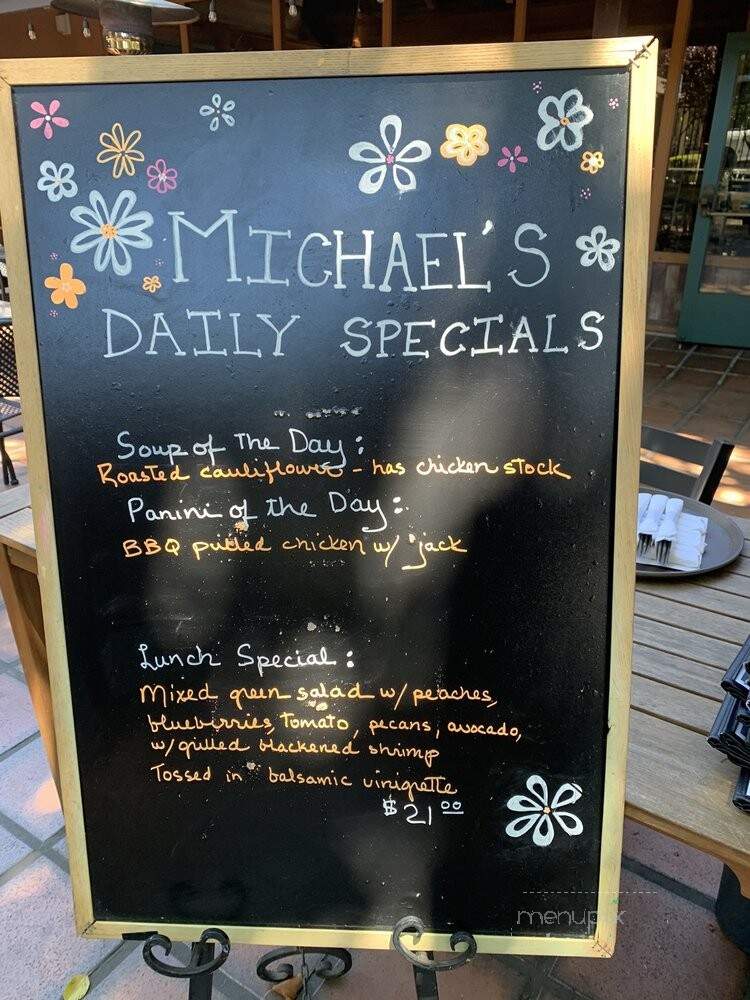 MICHAEL'S
DAILY SPECIALS
Soup of The Day:
Roasted cauliflower - has chicken stock
Panini of the Day:
BBQ pulled chicken w/ jack
Lunch Special:
Mixed green salad w/ peaches,
bluebirries, Tomato, pecans, avocado,
w/ grilled blackened shrimp
Tossed in balsamic vinigrette
$21.00
menupix